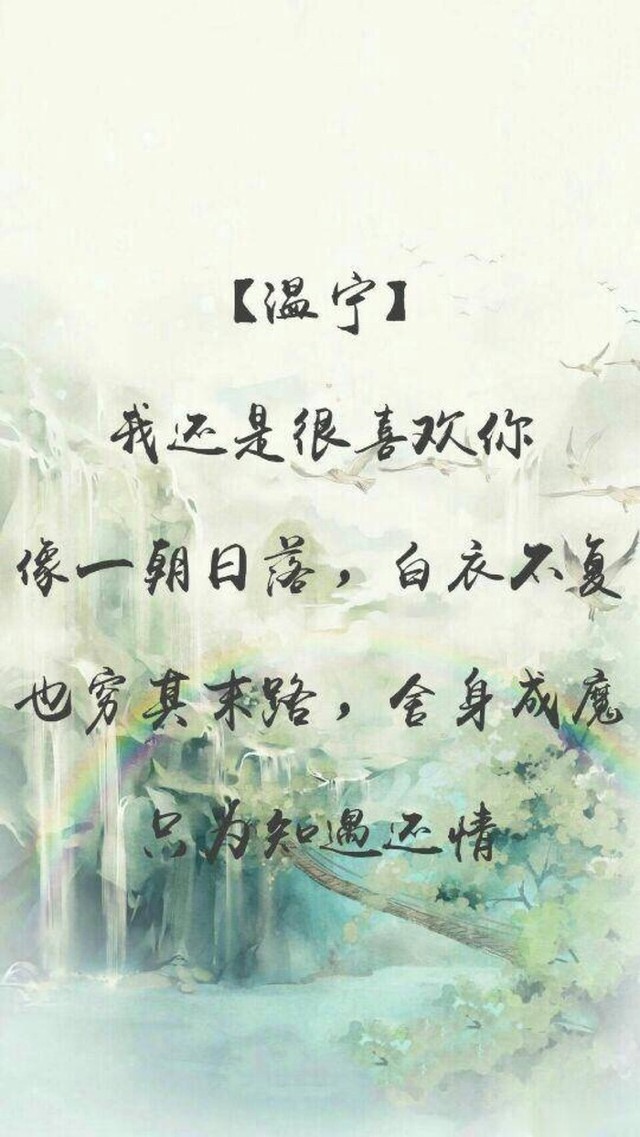 【温宁】
我还是很喜欢你
像一朝日落，白衣不复
也穷其末路，舍身成魔
只为知遇还情